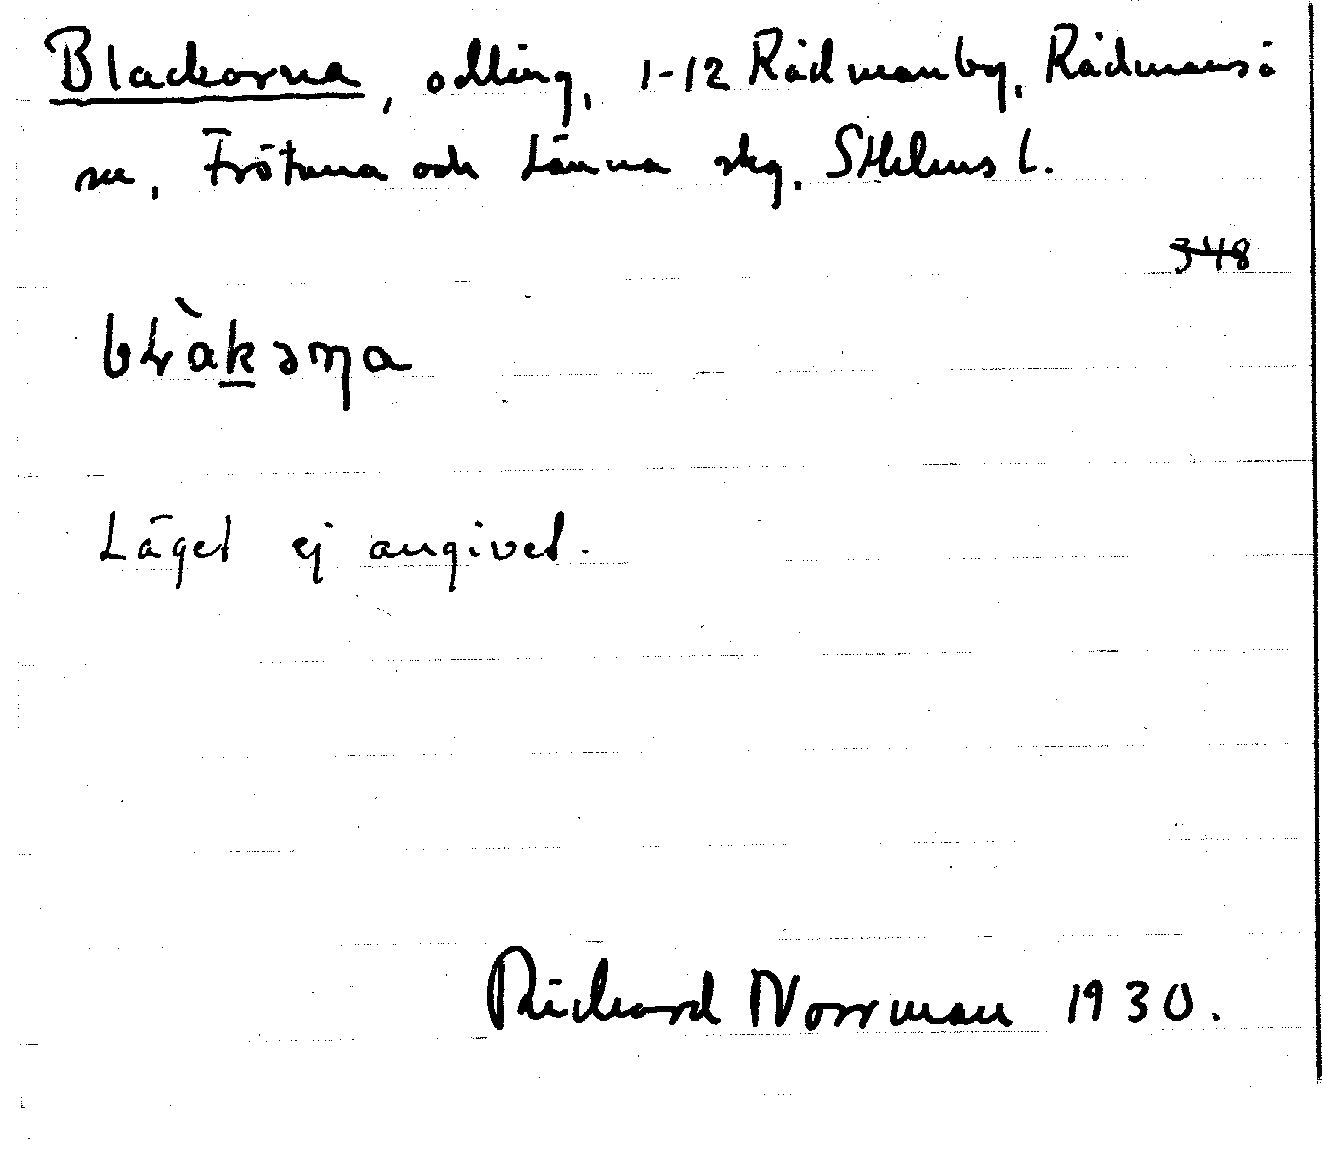 Blackorna, odling, 1-12 Rådmanby, Rådmansö
sn, Frötuna och Länna skg, Sthlms l.
348
Läget ej angivet.
Rickard Norrman 1930.